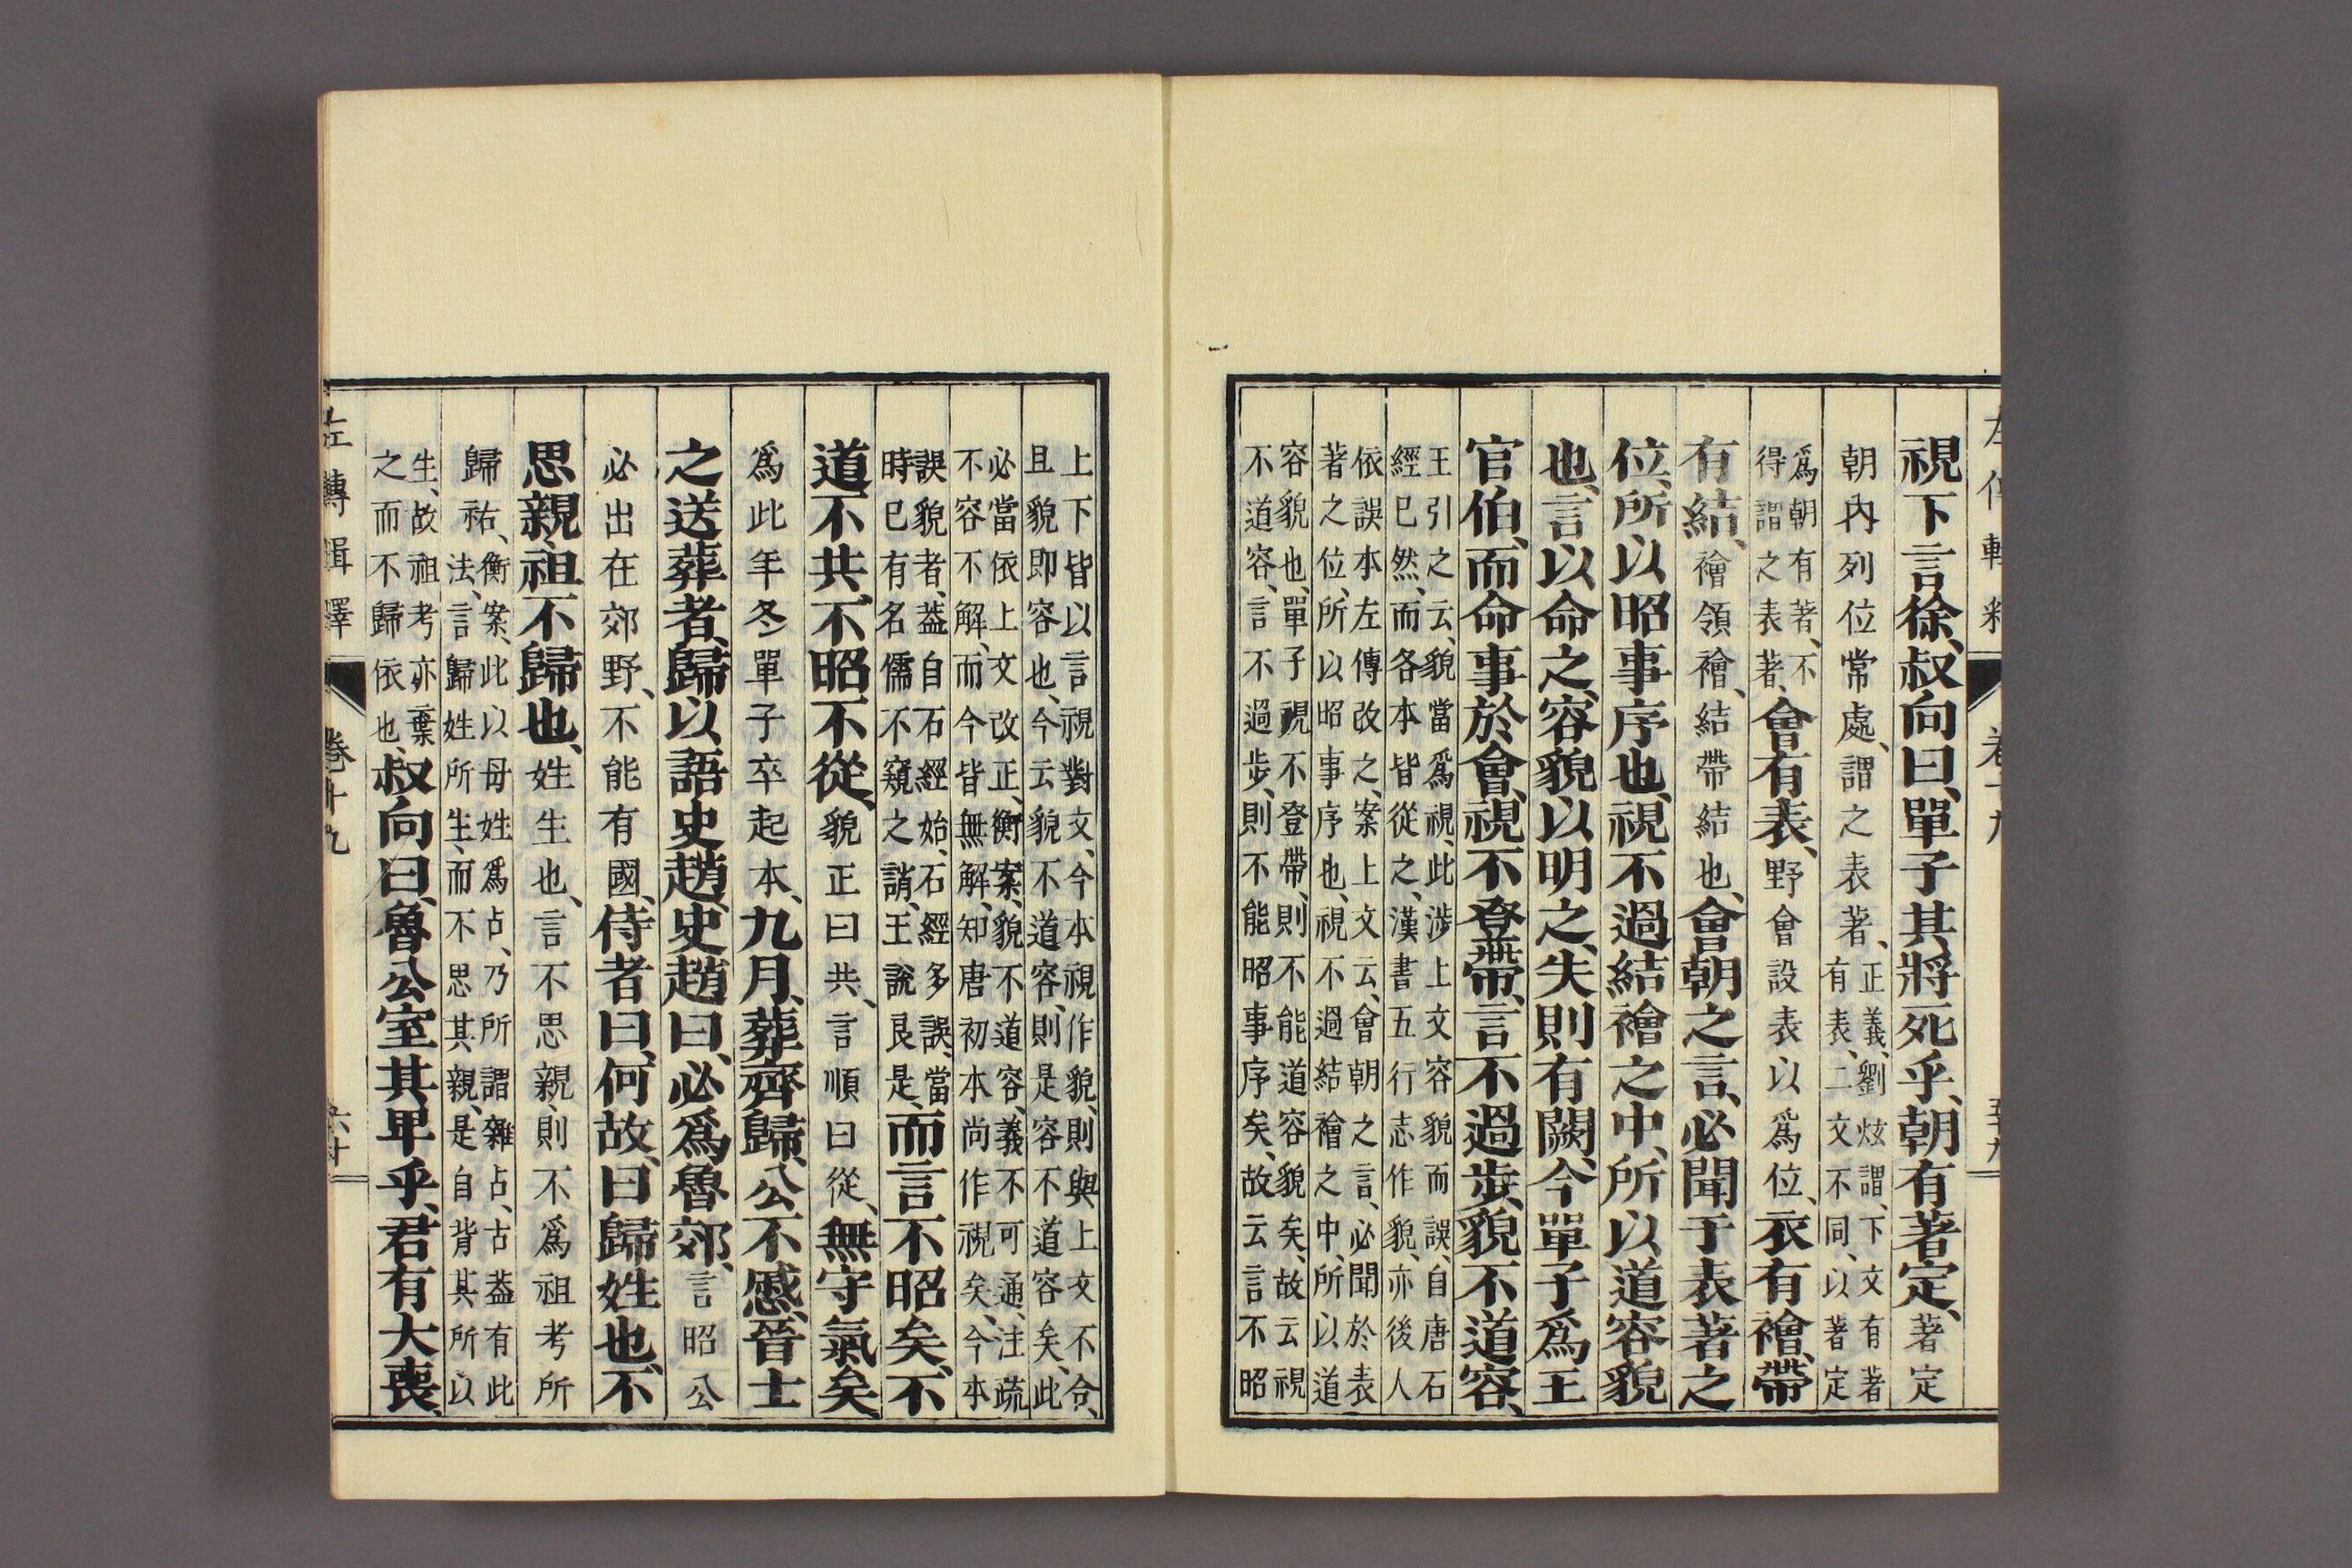 左傳輯釋 卷十九 五十九
視下言徐、叔向曰、單子其將死乎、朝有著定、著定
朝内列位常處、謂之表著、正義、劉炫謂、下文有著
有表、二文不同、以著定
爲朝有著、不
得謂之表著、會有表、野會設表以爲位、衣有襘、帶
有結、襘領襘、結帶結也、會朝之言、必聞于表著之
位、所以昭事序也、視不過結襘之中、所以道容貌
也、言以命之、容貌以明之、失則有闕、今單子爲王
官伯、而命事於會、視不登帶、言不過步、貌不道容、
王引之云、貌當爲視、此涉上文容貌而誤、自唐石
經已然、而各本皆從之、漢書五行志作貌、亦後人
依誤本左傳改之、案上文云、會朝之言、必聞於表
著之位、所以昭事序也、視不過結襘之中、所以道
容貌也、單子視不登帶、則不能道容貌矣、故云視
不道容、言不過步、則不能昭事序矣、故云言不昭
上下皆以言視對文、今本視作貌、則與上文不合、
且貌即容也、今云貌不道容、則是容不道容矣、此
必當依上文改正、衡案、貌不道容、義不可通、注疏
不容不解、而今皆無解、知唐初本尚作視矣、今本
誤貌者、蓋自石經始、石經多誤、當
時已有名儒不窺之誚、王說良是、而言不昭矣、不
道不共、不昭不從、貌正曰共、言順曰從、無守氣矣
爲此年冬單子卒起本、九月、葬齊歸、公不慼、晉士
之送葬者、歸以語史趙、史趙曰、必爲魯郊、言昭公
必出在郊野、不能有國、侍者曰、何故、曰歸姓也、不
思親、祖不歸也、姓生也、言不思親、則不爲祖考所
歸祐、衡案、此以毋姓爲占、乃所謂雜占、古蓋有此
法、言歸姓所生、而不思其親、是自背其所以
生、故祖考亦棄
之而不歸依也、叔向曰、魯公室其卑乎、君有大喪、
左傳輯釋 卷十九 六十